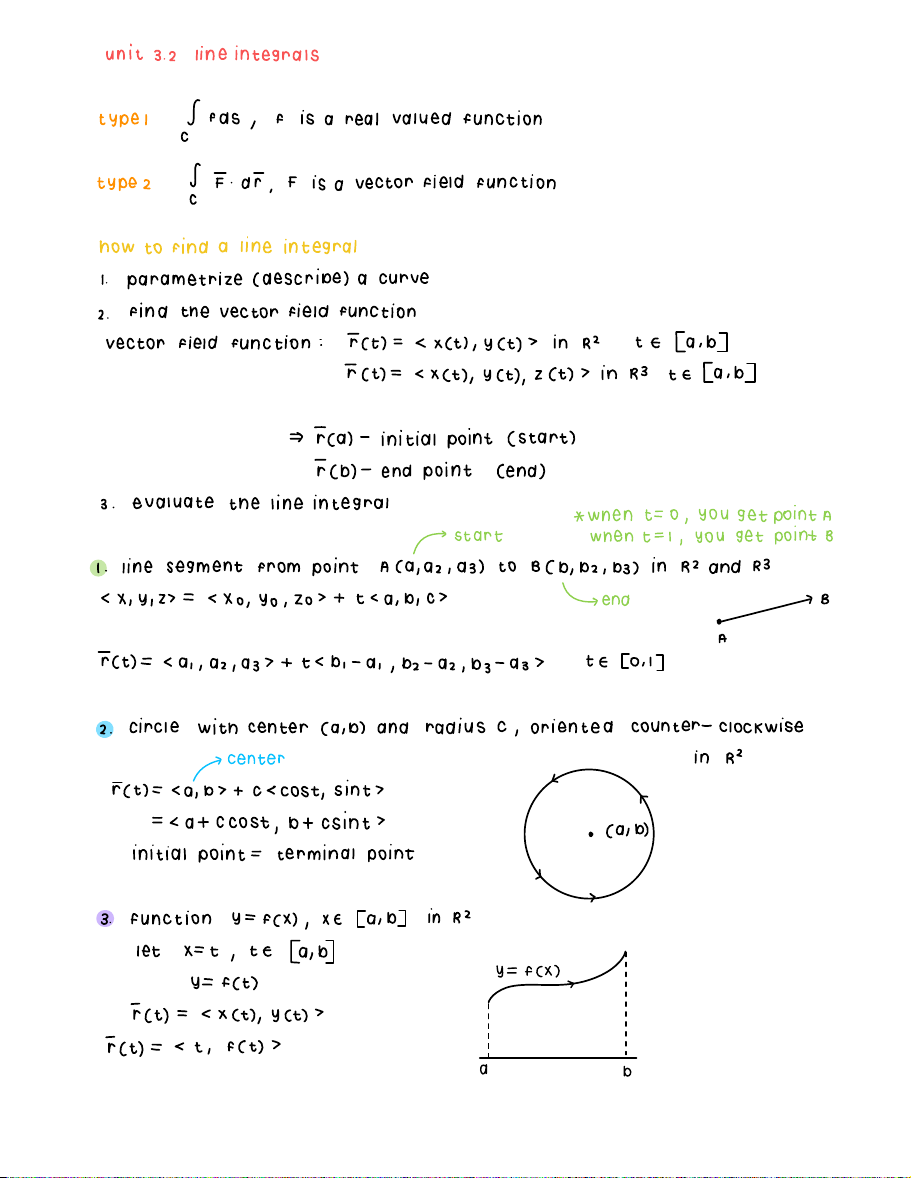 unit 3.2 line integrals
type 1 ∫ f ds , f is a real valued function
C
type 2 ∫ F̅ · dr̅ , F is a vector field function
C
how to find a line integral
1. parametrize (describe) a curve
2. find the vector field function
vector field function : r̅(t) = < x(t), y(t) > in R² t ∈ [a,b]
r̅(t) = < x(t), y(t), z(t) > in R³ t ∈ [a,b]
⇒ r̅(a) – initial point (start)
r̅(b) – end point (end)
3. evaluate the line integral
*when t = 0 , you get point A
start when t = 1 , you get point B
1. line segment from point A (a, a₂ , a₃) to B (b, b₂ , b₃) in R² and R³
< x, y, z > = < x₀, y₀ , z₀ > + t < a, b, c > end B
A
r̅(t) = < a₁ , a₂ , a₃ > + t < b₁ – a₁ , b₂ – a₂ , b₃ – a₃ > t ∈ [0,1]
2. circle with center (a,b) and radius c , oriented counter-clockwise
center in R²
r̅(t) = <a, b> + c <cost, sint>
= < a + c cost , b + csint > (a, b)
initial point = terminal point
3. function y = f(x) , x ∈ [a,b] in R²
let x = t , t ∈ [a,b]
y = f(x)
y = f(t)
r̅(t) = < x(t), y(t) >
r̅(t) = < t, f(t) >
a b